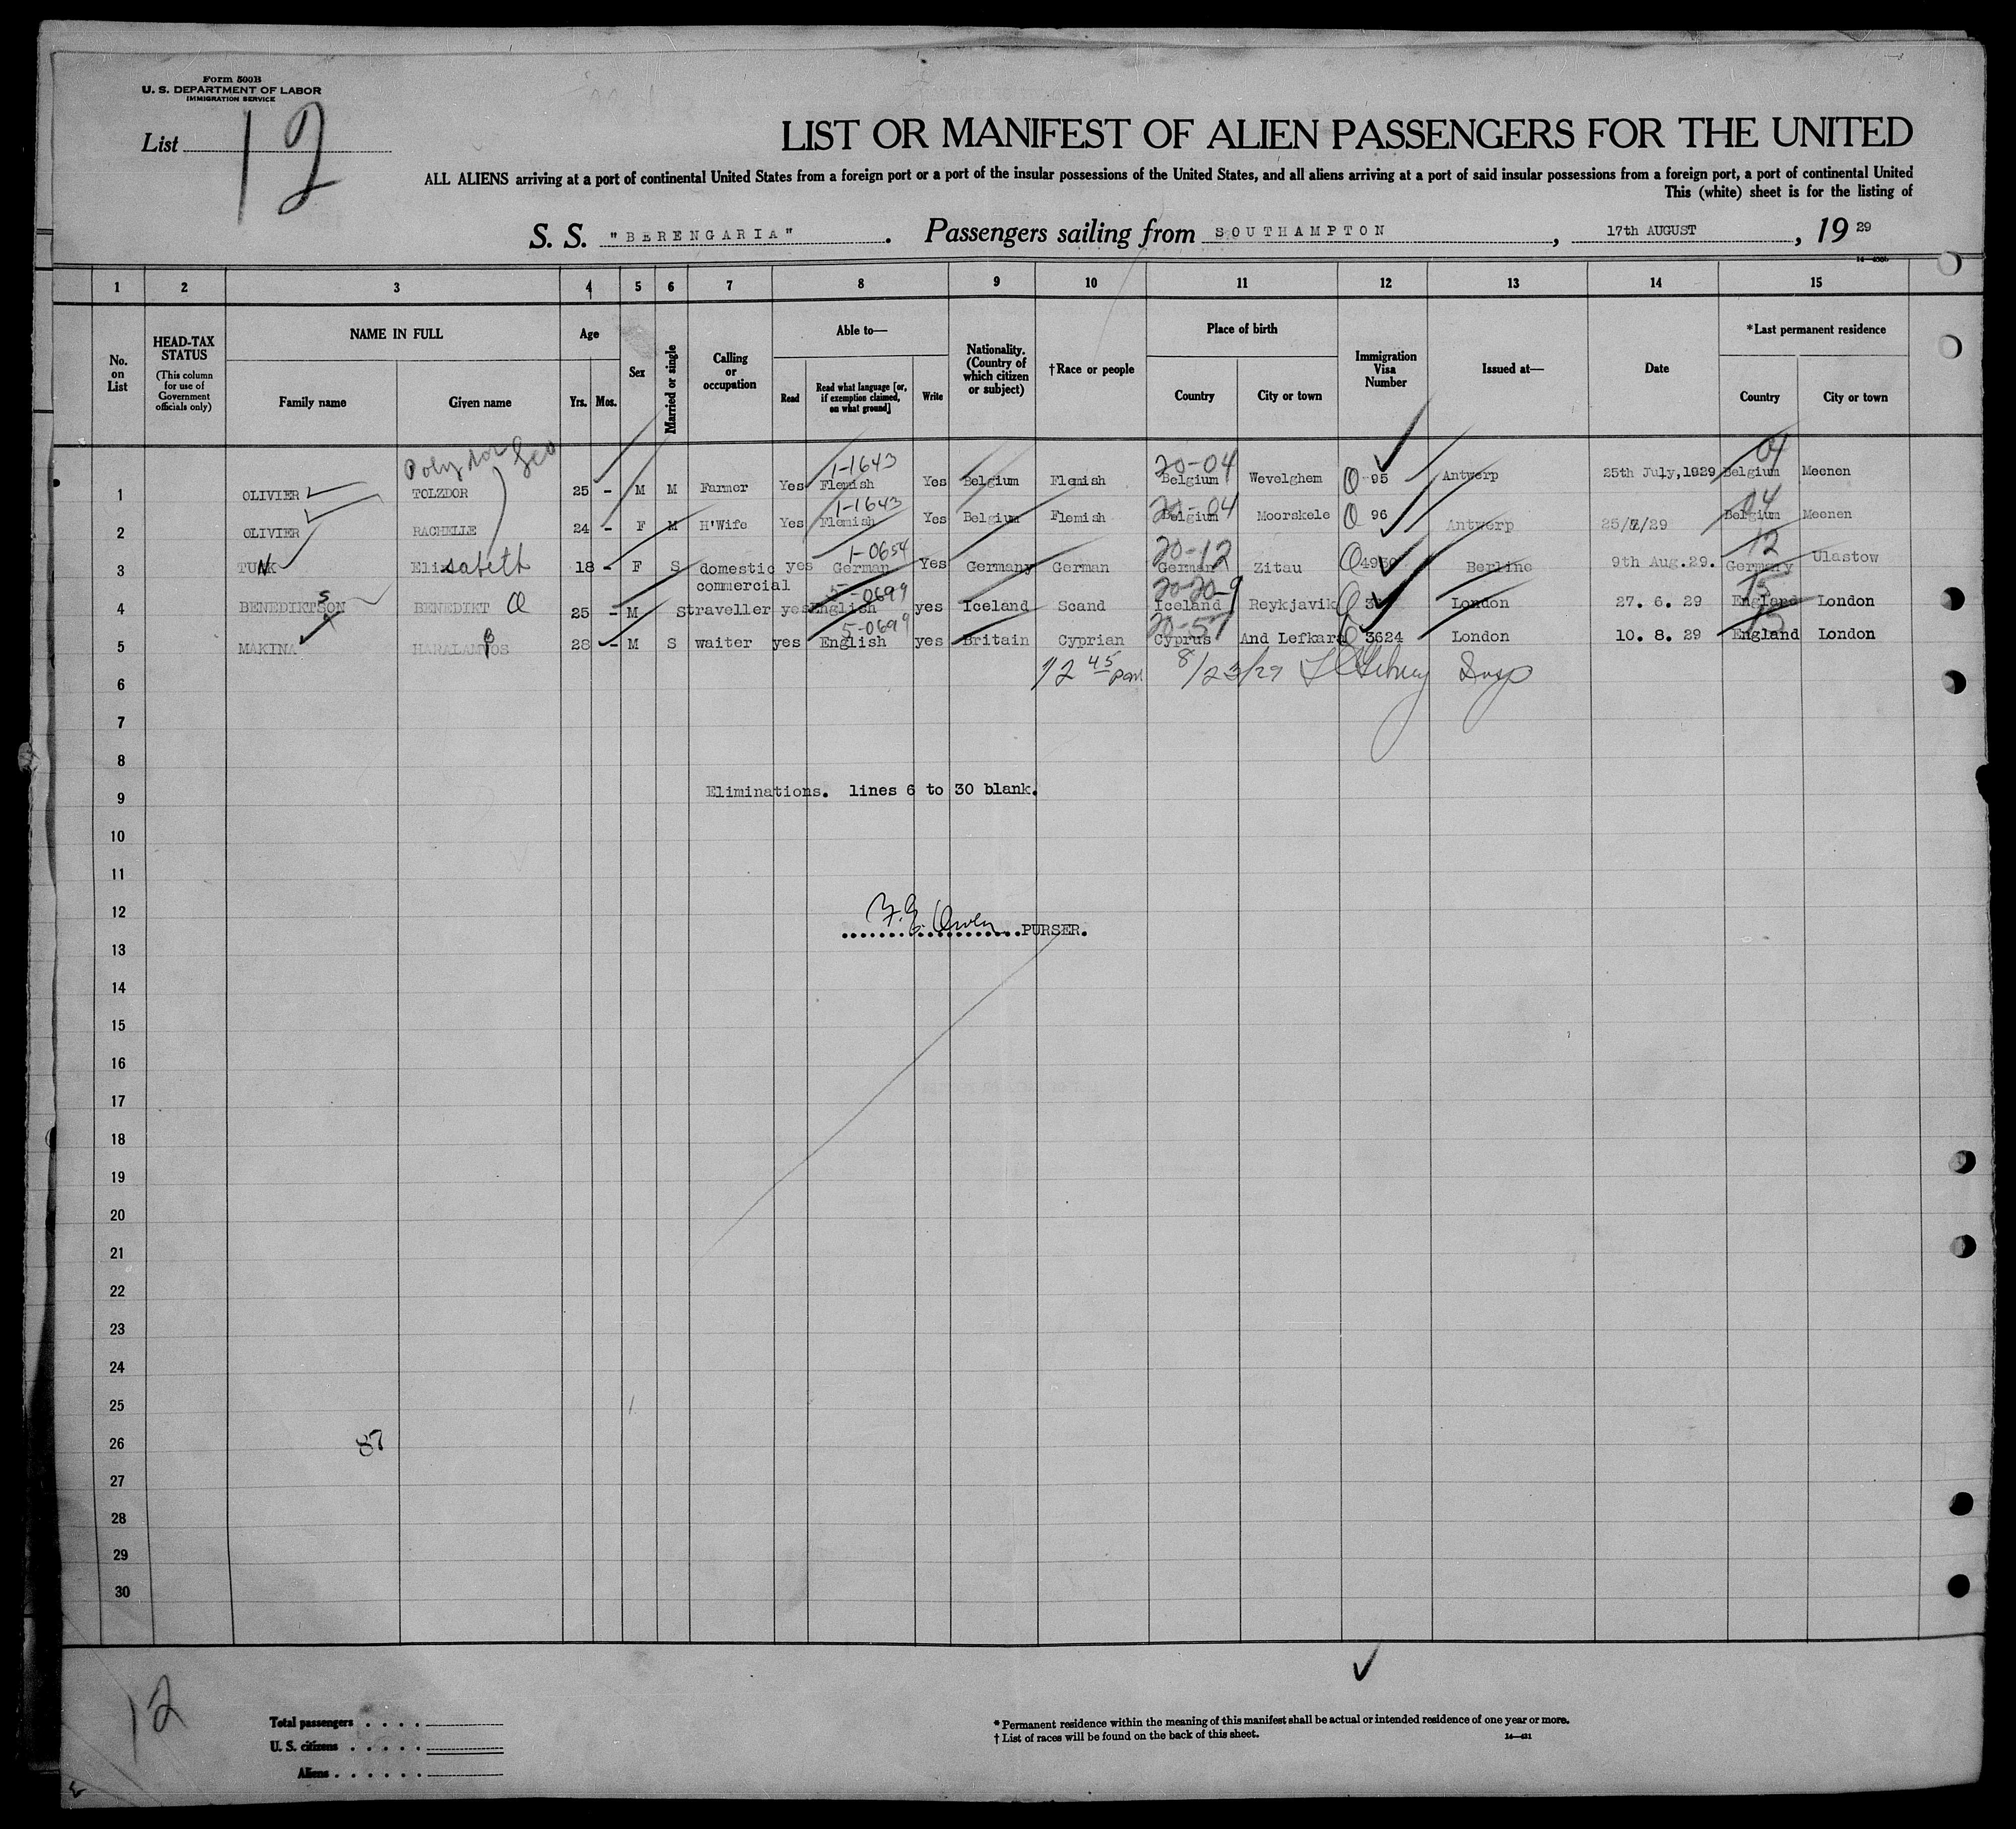 Form 500B
U. S. DEPARTMENT OF LABOR
IMMIGRATION SERVICE
List 12
LIST OR MANIFEST OF ALIEN PASSENGERS FOR THE UNITED
ALL ALIENS arriving at a port of continental United States from a foreign port or a port of the insular possessions of the United States, and all aliens arriving at a port of said insular possessions from a foreign port, a port of continental United
This (white) sheet is for the listing of
S. S. "BERENGARIA". Passengers sailing from SOUTHAMPTON, 17th AUGUST, 19 29
1 2 3 4 5 6 7 8 9 10 11 12 13 14 15
No. on List
HEAD-TAX STATUS
(This column for use of Government officials only)
NAME IN FULL
Family name Given name
Age
Yrs. Mos.
Sex
Married or single
Calling or occupation
Able to—
Read Read what language [or, if exemption claimed, on what ground] Write
Nationality. (Country of which citizen or subject)
†Race or people
Place of birth
Country City or town
Immigration Visa Number
Issued at—
Date
*Last permanent residence
Country City or town
1-1643 20-04 04
1 OLIVIER TOLZDOR 25 - M M Farmer Yes Flemish Yes Belgium Flemish Belgium Wevelghem 95 Antwerp 25th July,1929 Belgium Meenen
1-1643 20-04 04
2 OLIVIER RACHELLE 24 - F M H'Wife Yes Flemish Yes Belgium Flemish Belgium Moorskele 96 Antwerp 25/7/29 Belgium Meenen
1-0654 20-12 12
3 Elisabeth 18 - F S domestic yes German Yes Germany German German Zitau Berline 9th Aug.29. Germany Ulastow
5-0699 20-20-9 15
4 BENEDIKTSSON BENEDIKT 25 - M S commercial traveller yes English yes Iceland Scand Iceland Reykjavik London 27. 6. 29 England London
5-0699 20-57 15
5 MAKINA HARALAMBOS 28 - M S waiter yes English yes Britain Cyprian Cyprus And Lefkara 3624 London 10. 8. 29 England London
6 12 45 pm 8/23/29 Insp
7
8
9 Eliminations. lines 6 to 30 blank.
10
11
12
F.G. Owen PURSER.
13
14
15
16
17
18
19
20
21
22
23
24
25
26 87
27
28
29
30
12
Total passengers . . . .
U. S. citizens . . . . .
Aliens . . . . . .
* Permanent residence within the meaning of this manifest shall be actual or intended residence of one year or more.
† List of races will be found on the back of this sheet. 14—431